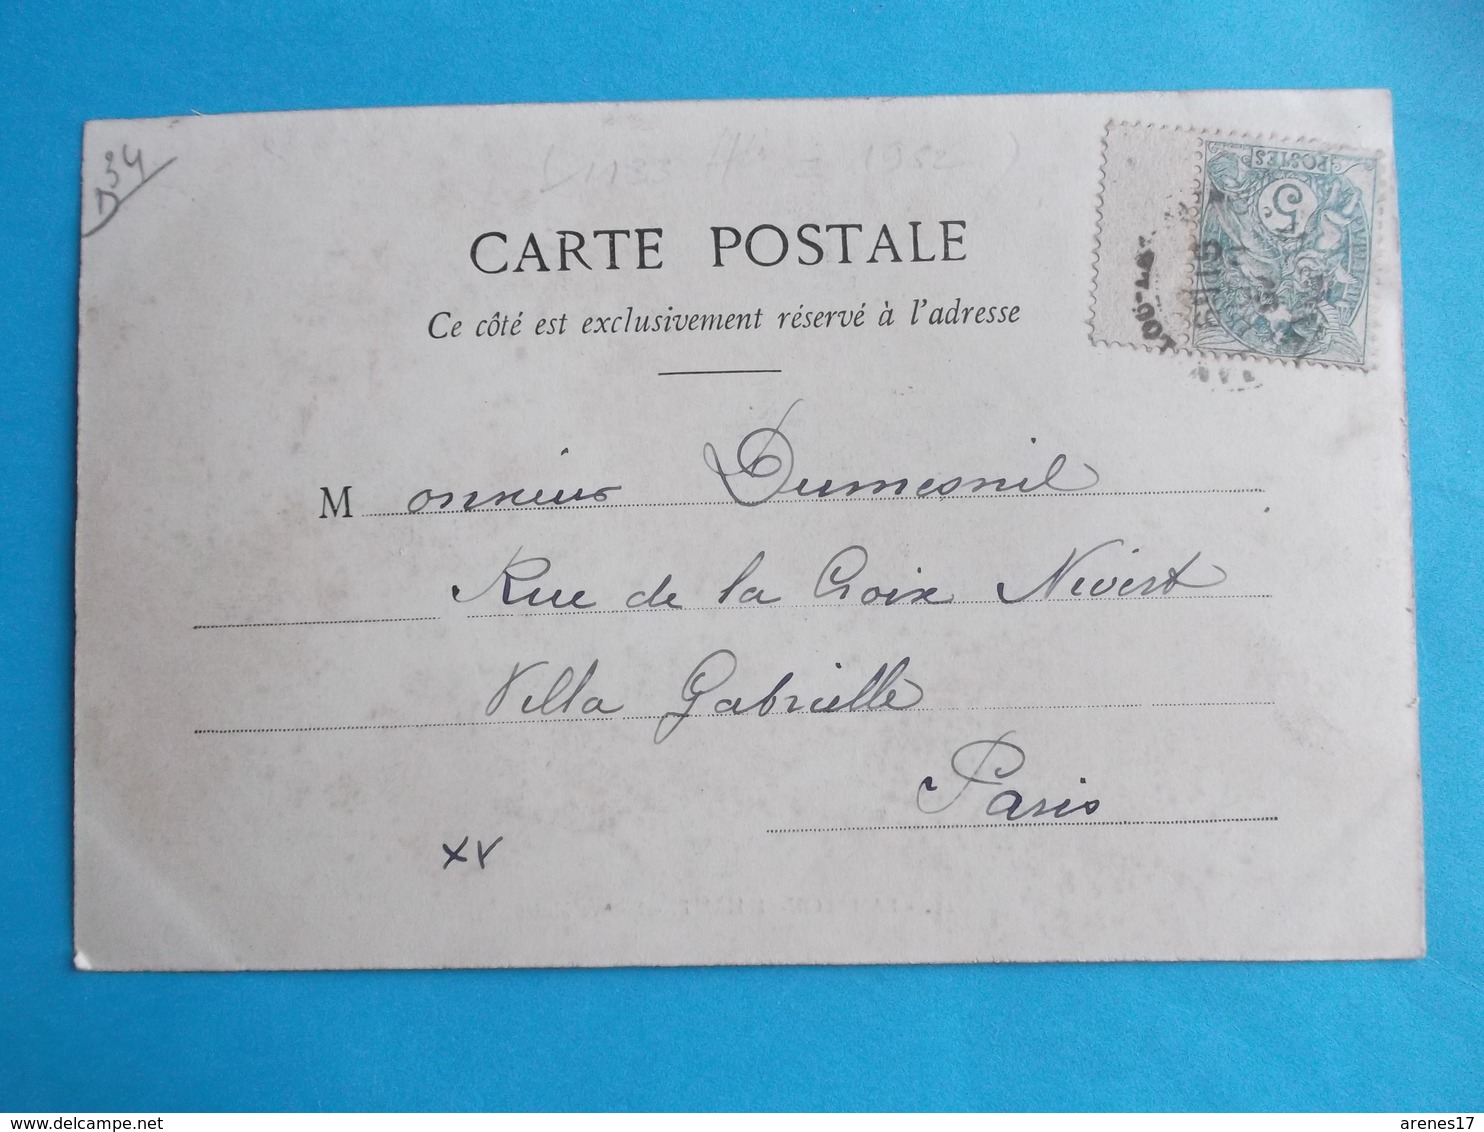 D34
CARTE POSTALE
Ce côté est exclusivement réservé à l'adresse
POSTES
5c
Monsieur Dumesnil
Rue de la Croix Nivert
Villa Gabrielle
Paris
XV
arenes17